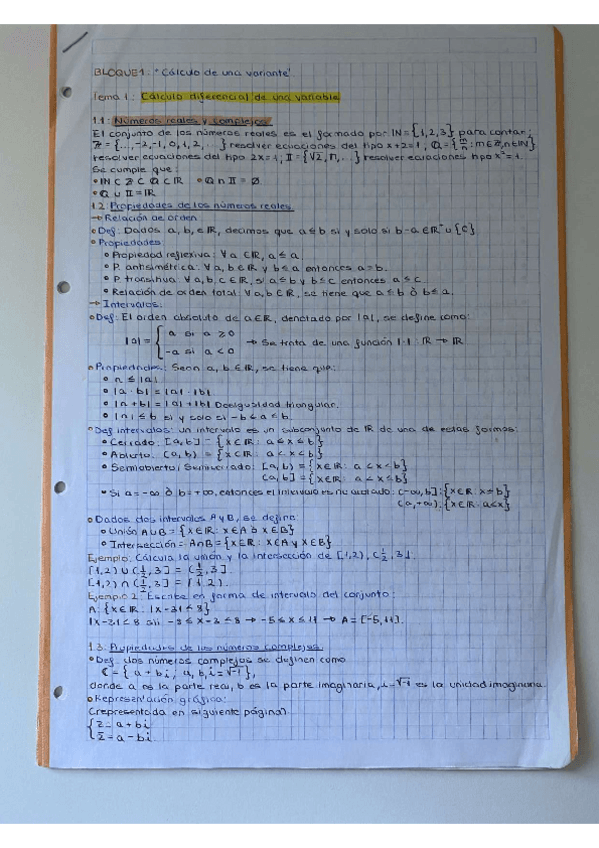 BLOQUE 1: "Cálculo de una variante".
Tema 1: Cálculo diferencial de una variable
1.1: Números reales y complejos
El conjunto de los números reales es el formado por IN = {1,2,3} para contar;
Z = {...,-2,-1,0,1,2,...} resolver ecuaciones del tipo x+2=1; Q = {m/n : m∈Z, n∈IN}
resolver ecuaciones del tipo 2x=1; II = {√2, π,...} resolver ecuaciones tipo x²=1.
Se cumple que:
• IN ⊂ Z ⊂ Q ⊂ IR • Q ∩ II = ∅
• Q ∪ II = IR
1.2. Propiedades de los números reales.
→ Relación de orden
• Def: Dados a, b, ∈ IR, decimos que a ≤ b si y solo si b-a ∈ IR⁺ ∪ {0}.
• Propiedades:
• Propiedad reflexiva: ∀ a ∈ IR, a ≤ a.
• P. antisimétrica: ∀ a, b ∈ IR y b ≤ a entonces a = b.
• P. transitiva: ∀ a, b, c ∈ IR, si a ≤ b y b ≤ c entonces a ≤ c.
• Relación de orden total: ∀ a, b ∈ IR, se tiene que a ≤ b ò b ≤ a.
→ Intervalos:
• Def: El orden absoluto de a ∈ IR, denotado por |a|, se define como:
|a| = { a si a ≥ 0
-a si a < 0 → Se trata de una función |·| : IR → IR
• Propiedades: Sean a, b ∈ IR, se tiene que:
• a ≤ |a|
• |a · b| = |a| · |b|
• |a + b| = |a| + |b| Desigualdad triangular.
• |a| ≤ b si y solo si -b ≤ a ≤ b.
• Def intervalos: un intervalo es un subconjunto de IR de una de estas formas:
• Cerrado: [a, b] = {x ∈ IR : a ≤ x ≤ b}
• Abierto: (a, b) = {x ∈ IR : a < x < b}
• Semiabierto / Semicerrado: [a, b) = {x ∈ IR : a < x < b}
(a, b] = {x ∈ IR : a < x ≤ b}
• Si a = -∞ ò b = +∞, entonces el intervalo es no acotado: (-∞, b] : {x ∈ IR : x ≤ b}
(a, +∞) : {x ∈ IR : a < x}
• Dados dos intervalos A y B, se define:
• Unión A ∪ B = {x ∈ IR : x ∈ A ò x ∈ B}
• Intersección = A ∩ B = {x ∈ IR : x ∈ A y x ∈ B}
Ejemplo: Cálcula la unión y la intersección de [1,2), (½, 3].
[1,2) ∪ (½, 3] = (½, 3].
[1,2) ∩ (½, 3] = [1 2).
Ejemplo 2: Escribe en forma de intervalo del conjunto:
A: {x ∈ IR : |x-3| ≤ 8}
|x-3| ≤ 8 sii -8 ≤ x-3 ≤ 8 → -5 ≤ x ≤ 11 → A = [-5, 11].
1.3. Propiedades de los números complejos
• Def: los números complejos se definen como
C = {a + bi; a, b, i = √-1},
donde a es la parte real, b es la parte imaginaria, i = √-1 es la unidad imaginaria.
• Representación gráfica:
(representada en siguiente página).
{ z = a + bi
z̄ = a - bi